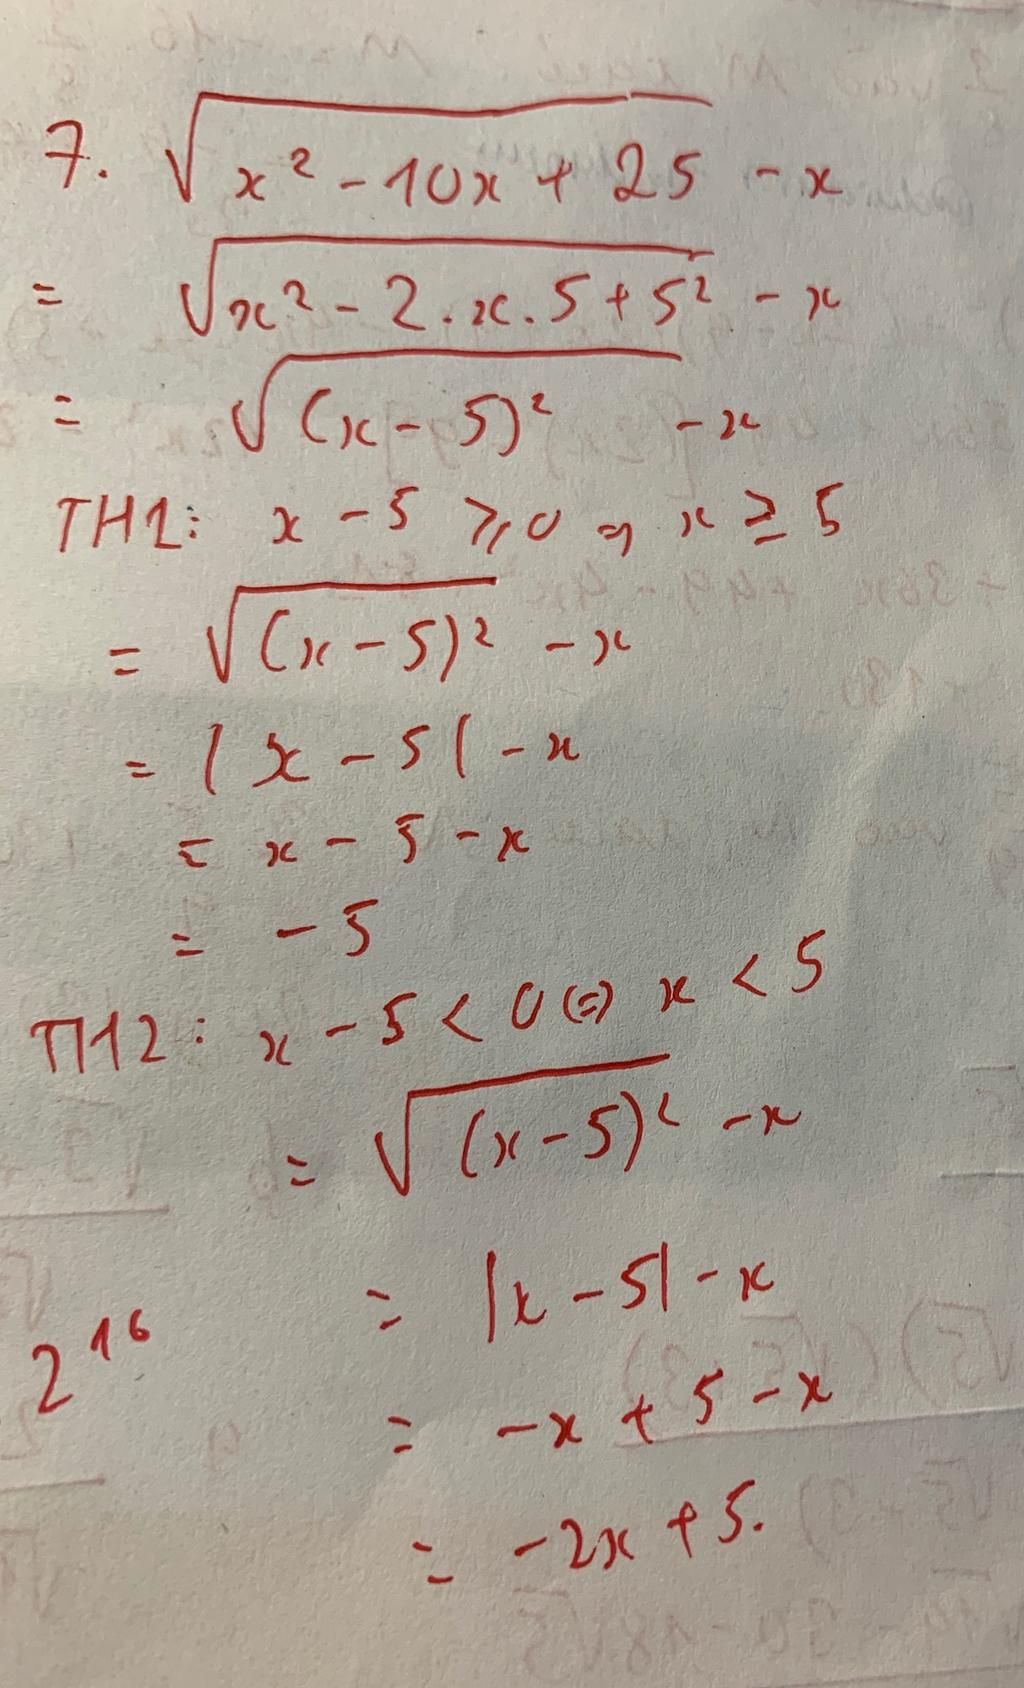 7. √(x² - 10x + 25) - x
= √(x² - 2.x.5 + 5²) - x
= √((x - 5)²) - x
TH1: x - 5 ≥ 0 ⇒ x ≥ 5
= √((x - 5)²) - x
= |x - 5| - x
= x - 5 - x
= - 5
TH2: x - 5 < 0 (=) x < 5
= √((x - 5)²) - x
= |x - 5| - x
2¹⁶
= -x + 5 - x
= -2x + 5.